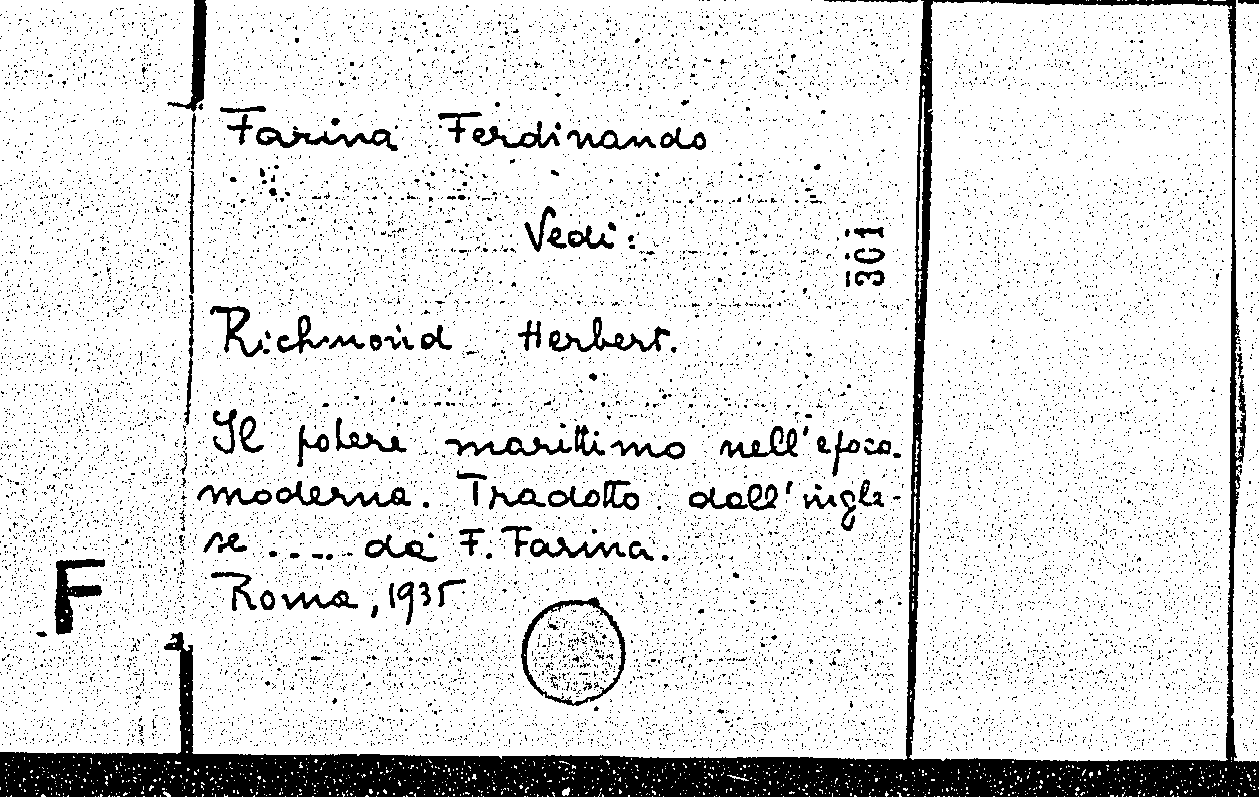 Farina Ferdinando
Vedi:
301
Richmond Herbert.
Il potere marittimo nell'epoca
moderna. Tradotto dall'ingle-
se .... da F. Farina.
Roma, 1935
F